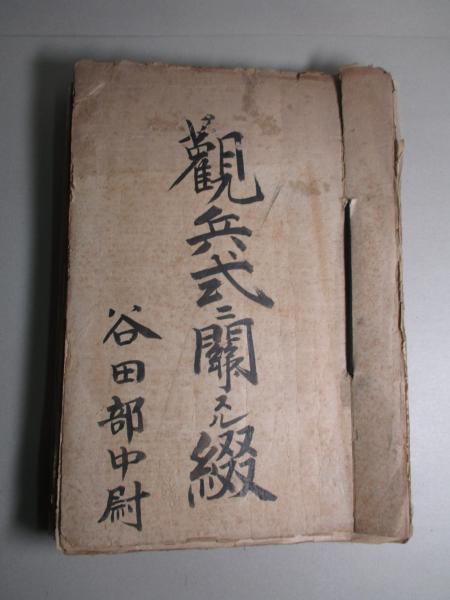 觀兵式ニ關スル綴
谷田部中尉